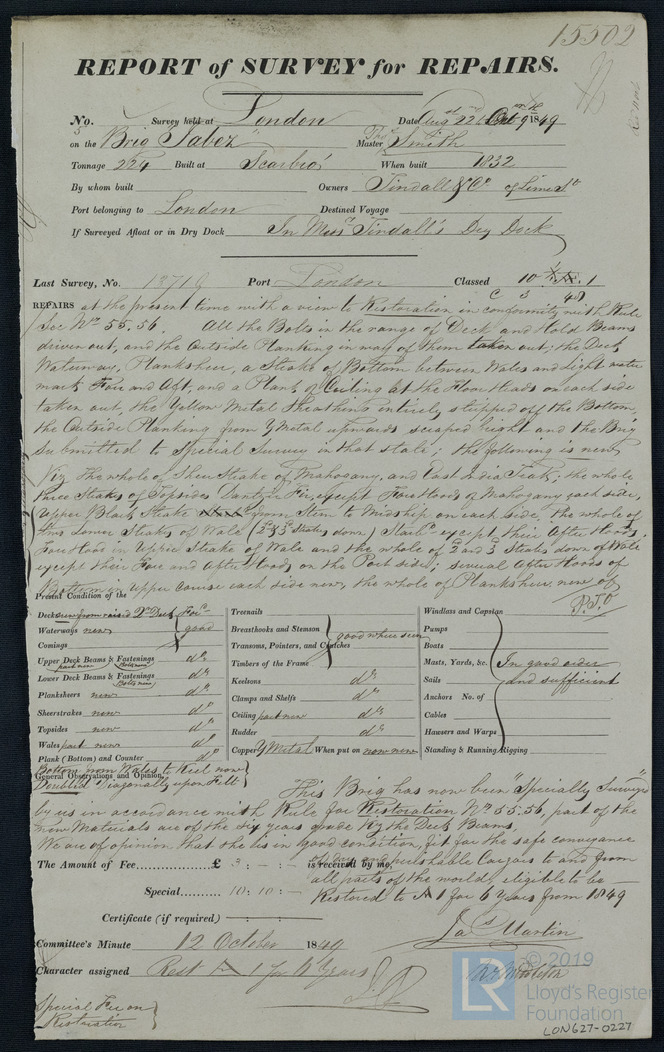 15502
REPORT of SURVEY for REPAIRS.
No. Survey held at London Date Aug 22 Oct 9 1849
on the Brig Jabez Master Smith
Tonnage 224 Built at Scarbro' When built 1832
By whom built Owners Tindall & Co of Lime St
Port belonging to London Destined Voyage
If Surveyed Afloat or in Dry Dock In Messrs Tindall's Dry Dock
Last Survey, No. Port London Classed 10 1
REPAIRS at the present time with a view to Restoration in conformity with Rule
Sec Nos 55.56. All the Bolts in the range of Deck and Hold Beams
driven out, and the Outside Planking in way of them taken out; the Deck
Waterway, Planksheer, a Strake of Bottom between Wales and Light water
mark Fore and Aft, and a Plank of Ceiling at the Floor Heads on each side
taken out, the Yellow Metal Sheathing entirely stripped off the Bottom,
the Outside Planking from Y Metal upwards scraped bright and the Brig
Submitted to Special Survey in that state; the following is new
Viz The whole of Sheer Strake of Mahogany, and East India Teak; the whole
three Strakes of Topsides Dantzic Fir, except Fore Hoods of Mahogany each side,
Upper Black Strake from Stem to Midship on each side. the whole of
two Lower Strakes of Wale (2d & 3d Strakes down) Starbd except their After Hoods,
Fore Hood in Upper Strake of Wale and the whole of 2d and 3d Strakes down of Wale
except their Fore and After Hoods on the Port side; several After Hoods of
Bottom in Upper course each side new, the whole of Planksheer new of
P.T.O
Present Condition of the
Decks new from raised Qr Deck Forwd
Waterways new good
Comings
Upper Deck Beams & Fastenings part new Bolts new do
Lower Deck Beams & Fastenings Bolts new do
Planksheers new do
Sheerstrakes new do
Topsides new do
Wales part new do
Plank (Bottom) and Counter do
Treenails
Breasthooks and Stemson good where seen
Transoms, Pointers, and Crutches
Timbers of the Frame
Keelsons do
Clamps and Shelfs do
Ceiling part new do
Rudder do
Copper Y Metal When put on now new
Windlass and Capstan
Pumps
Boats
Masts, Yards, &c. In good order
Sails and sufficient
Anchors No. of
Cables
Hawsers and Warps
Standing & Running Rigging
Bottom from Wales to Keel now
General Observations and Opinion,
Doubled Diagonally upon Felt
This Brig has now been "Specially Surveyed"
by us in accordance with Rule for Restoration Nos 55.56, part of the
new Materials are of the six years grade Viz the Deck Beams,
We are of opinion that she is in good condition, fit for the safe conveyance
The Amount of Fee £ 3 : - : - is received by me,
of dry and perishable Cargoes to and from
all parts of the world, eligible to be
Special 10 : 10 : -
Restored to A 1 for 6 Years from 1849
Certificate (if required)
Jas Martin
Committee's Minute 12 October 1849
Character assigned Rest A 1 for 6 Years
Special Fee on
Restoration
© 2019
LR
Lloyd's Register
Foundation
LON627-0227